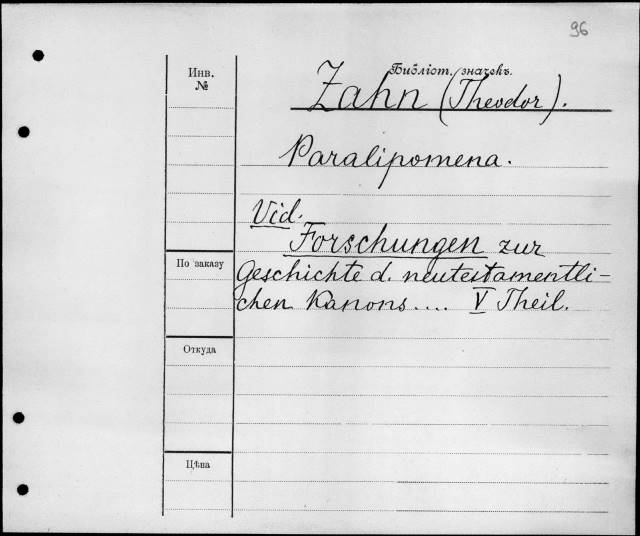 96
Библіот. значекъ.
Инв. №
Zahn (Theodor).
Paralipomena.
Vid.
Forschungen zur
По заказу
Geschichte d. neutestamentli-
chen Kanons.... V Theil.
Откуда
Цѣна